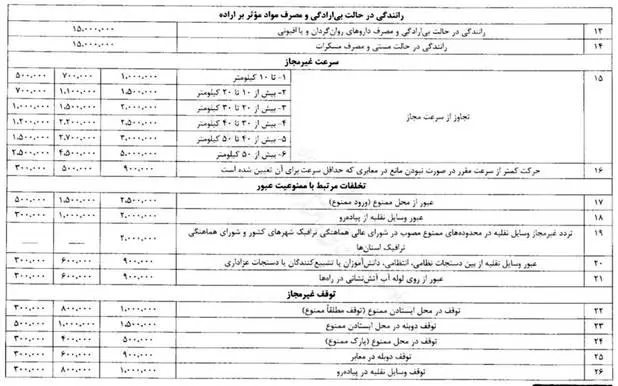 رانندگی در حالت بی‌ارادگی و مصرف مواد مؤثر بر اراده
۱۳ رانندگی در حالت بی‌ارادگی و مصرف داروهای روان‌گردان و یا افیونی ۱۵،۰۰۰،۰۰۰
۱۴ رانندگی در حالت مستی و مصرف مسکرات ۱۵،۰۰۰،۰۰۰
سرعت غیرمجاز
۱۵ تجاوز از سرعت مجاز
۱- تا ۱۰ کیلومتر ۱،۰۰۰،۰۰۰ ۷۰۰،۰۰۰ ۵۰۰،۰۰۰
۲- بیش از ۱۰ تا ۲۰ کیلومتر ۱،۵۰۰،۰۰۰ ۱،۱۰۰،۰۰۰ ۷۰۰،۰۰۰
۳- بیش از ۲۰ تا ۳۰ کیلومتر ۲،۰۰۰،۰۰۰ ۱،۵۰۰،۰۰۰ ۱،۰۰۰،۰۰۰
۴- بیش از ۳۰ تا ۴۰ کیلومتر ۲،۵۰۰،۰۰۰ ۲،۲۰۰،۰۰۰ ۱،۲۰۰،۰۰۰
۵- بیش از ۴۰ تا ۵۰ کیلومتر ۳،۰۰۰،۰۰۰ ۲،۷۰۰،۰۰۰ ۱،۵۰۰،۰۰۰
۶- بیش از ۵۰ کیلومتر ۵،۰۰۰،۰۰۰ ۴،۵۰۰،۰۰۰ ۲،۵۰۰،۰۰۰
۱۶ حرکت کمتر از سرعت مقرر در صورت نبودن مانع در معابری که حداقل سرعت برای آن تعیین شده است ۹۰۰،۰۰۰ ۵۰۰،۰۰۰ ۳۰۰،۰۰۰
تخلفات مرتبط با ممنوعیت عبور
۱۷ عبور از محل ممنوع (ورود ممنوع) ۲،۵۰۰،۰۰۰ ۱،۵۰۰،۰۰۰ ۵۰۰،۰۰۰
۱۸ عبور وسایل نقلیه از پیاده‌رو ۲،۰۰۰،۰۰۰ ۱،۰۰۰،۰۰۰ ۳۰۰،۰۰۰
۱۹ تردد غیرمجاز وسایل نقلیه در محدوده‌های ممنوع مصوب در شورای عالی هماهنگی ترافیک شهرهای کشور و شورای هماهنگی ۲،۰۰۰،۰۰۰ — —
ترافیک استان‌ها
۲۰ عبور وسایل نقلیه از بین دستجات نظامی، انتظامی، دانش‌آموزان یا تشییع‌کنندگان یا دستجات عزاداری ۹۰۰،۰۰۰ ۶۰۰،۰۰۰ ۳۰۰،۰۰۰
۲۱ عبور از روی لوله آب آتش‌نشانی در راه‌ها ۹۰۰،۰۰۰ ۶۰۰،۰۰۰ ۳۰۰،۰۰۰
توقف غیرمجاز
۲۲ توقف در محل ایستادن ممنوع (توقف مطلقاً ممنوع) ۱،۰۰۰،۰۰۰ ۸۰۰،۰۰۰ ۳۰۰،۰۰۰
۲۳ توقف دوبله در محل ایستادن ممنوع ۱،۵۰۰،۰۰۰ ۱،۰۰۰،۰۰۰ ۵۰۰،۰۰۰
۲۴ توقف در محل ممنوع (پارک ممنوع) ۵۰۰،۰۰۰ ۴۰۰،۰۰۰ ۳۰۰،۰۰۰
۲۵ توقف دوبله در معابر ۹۰۰،۰۰۰ ۶۰۰،۰۰۰ ۳۰۰،۰۰۰
۲۶ توقف وسایل نقلیه در پیاده‌رو ۱،۰۰۰،۰۰۰ ۸۰۰،۰۰۰ ۳۰۰،۰۰۰